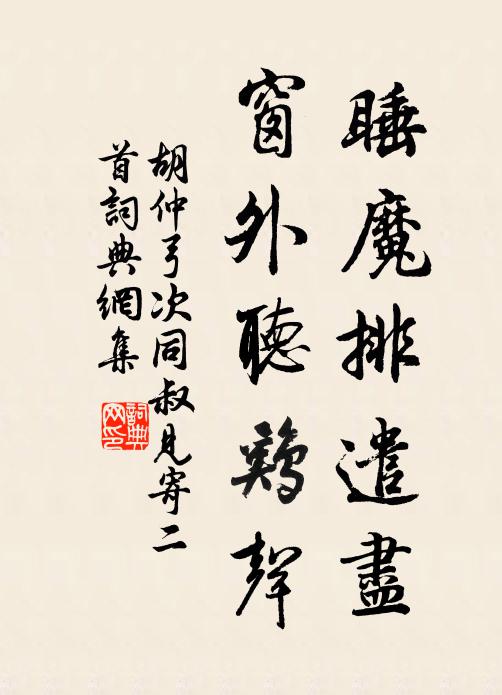 睡魔排遣盡
窗外聽鷄聲
胡仲弓次同叔見寄二
首詞典網集
詞典
网印